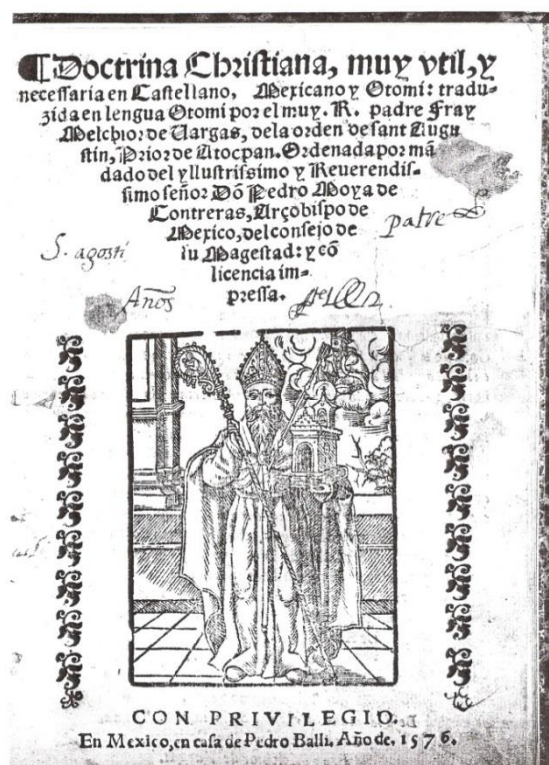 ¶Doctrina Christiana, muy vtil, y
necessaria en Castellano, Mexicano y Otomi: tradu-
zida en lengua Otomi por el muy. R. padre Fray
Melchior de Vargas, dela orden de sant Augu
stin, Prior de Atocpan. Ordenada por mã
dado del yllustrissimo y Reuerendis-
simo señor Dõ Pedro Moya de
Contreras, Arçobispo de
Mexico, del consejo de
su Magestad: y cõ
licencia im-
pressa.
patre
S. agosti
Años
CON PRIVILEGIO.
En Mexico, en casa de Pedro Balli. Año de. 1576.